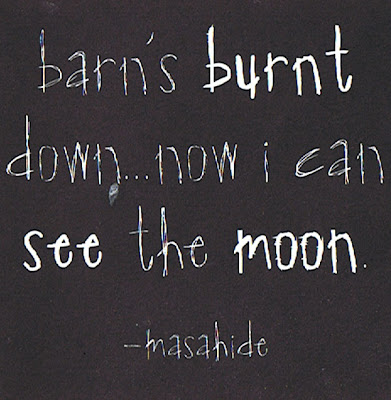 barn's burnt
down...now i can
see the moon.
-masahide